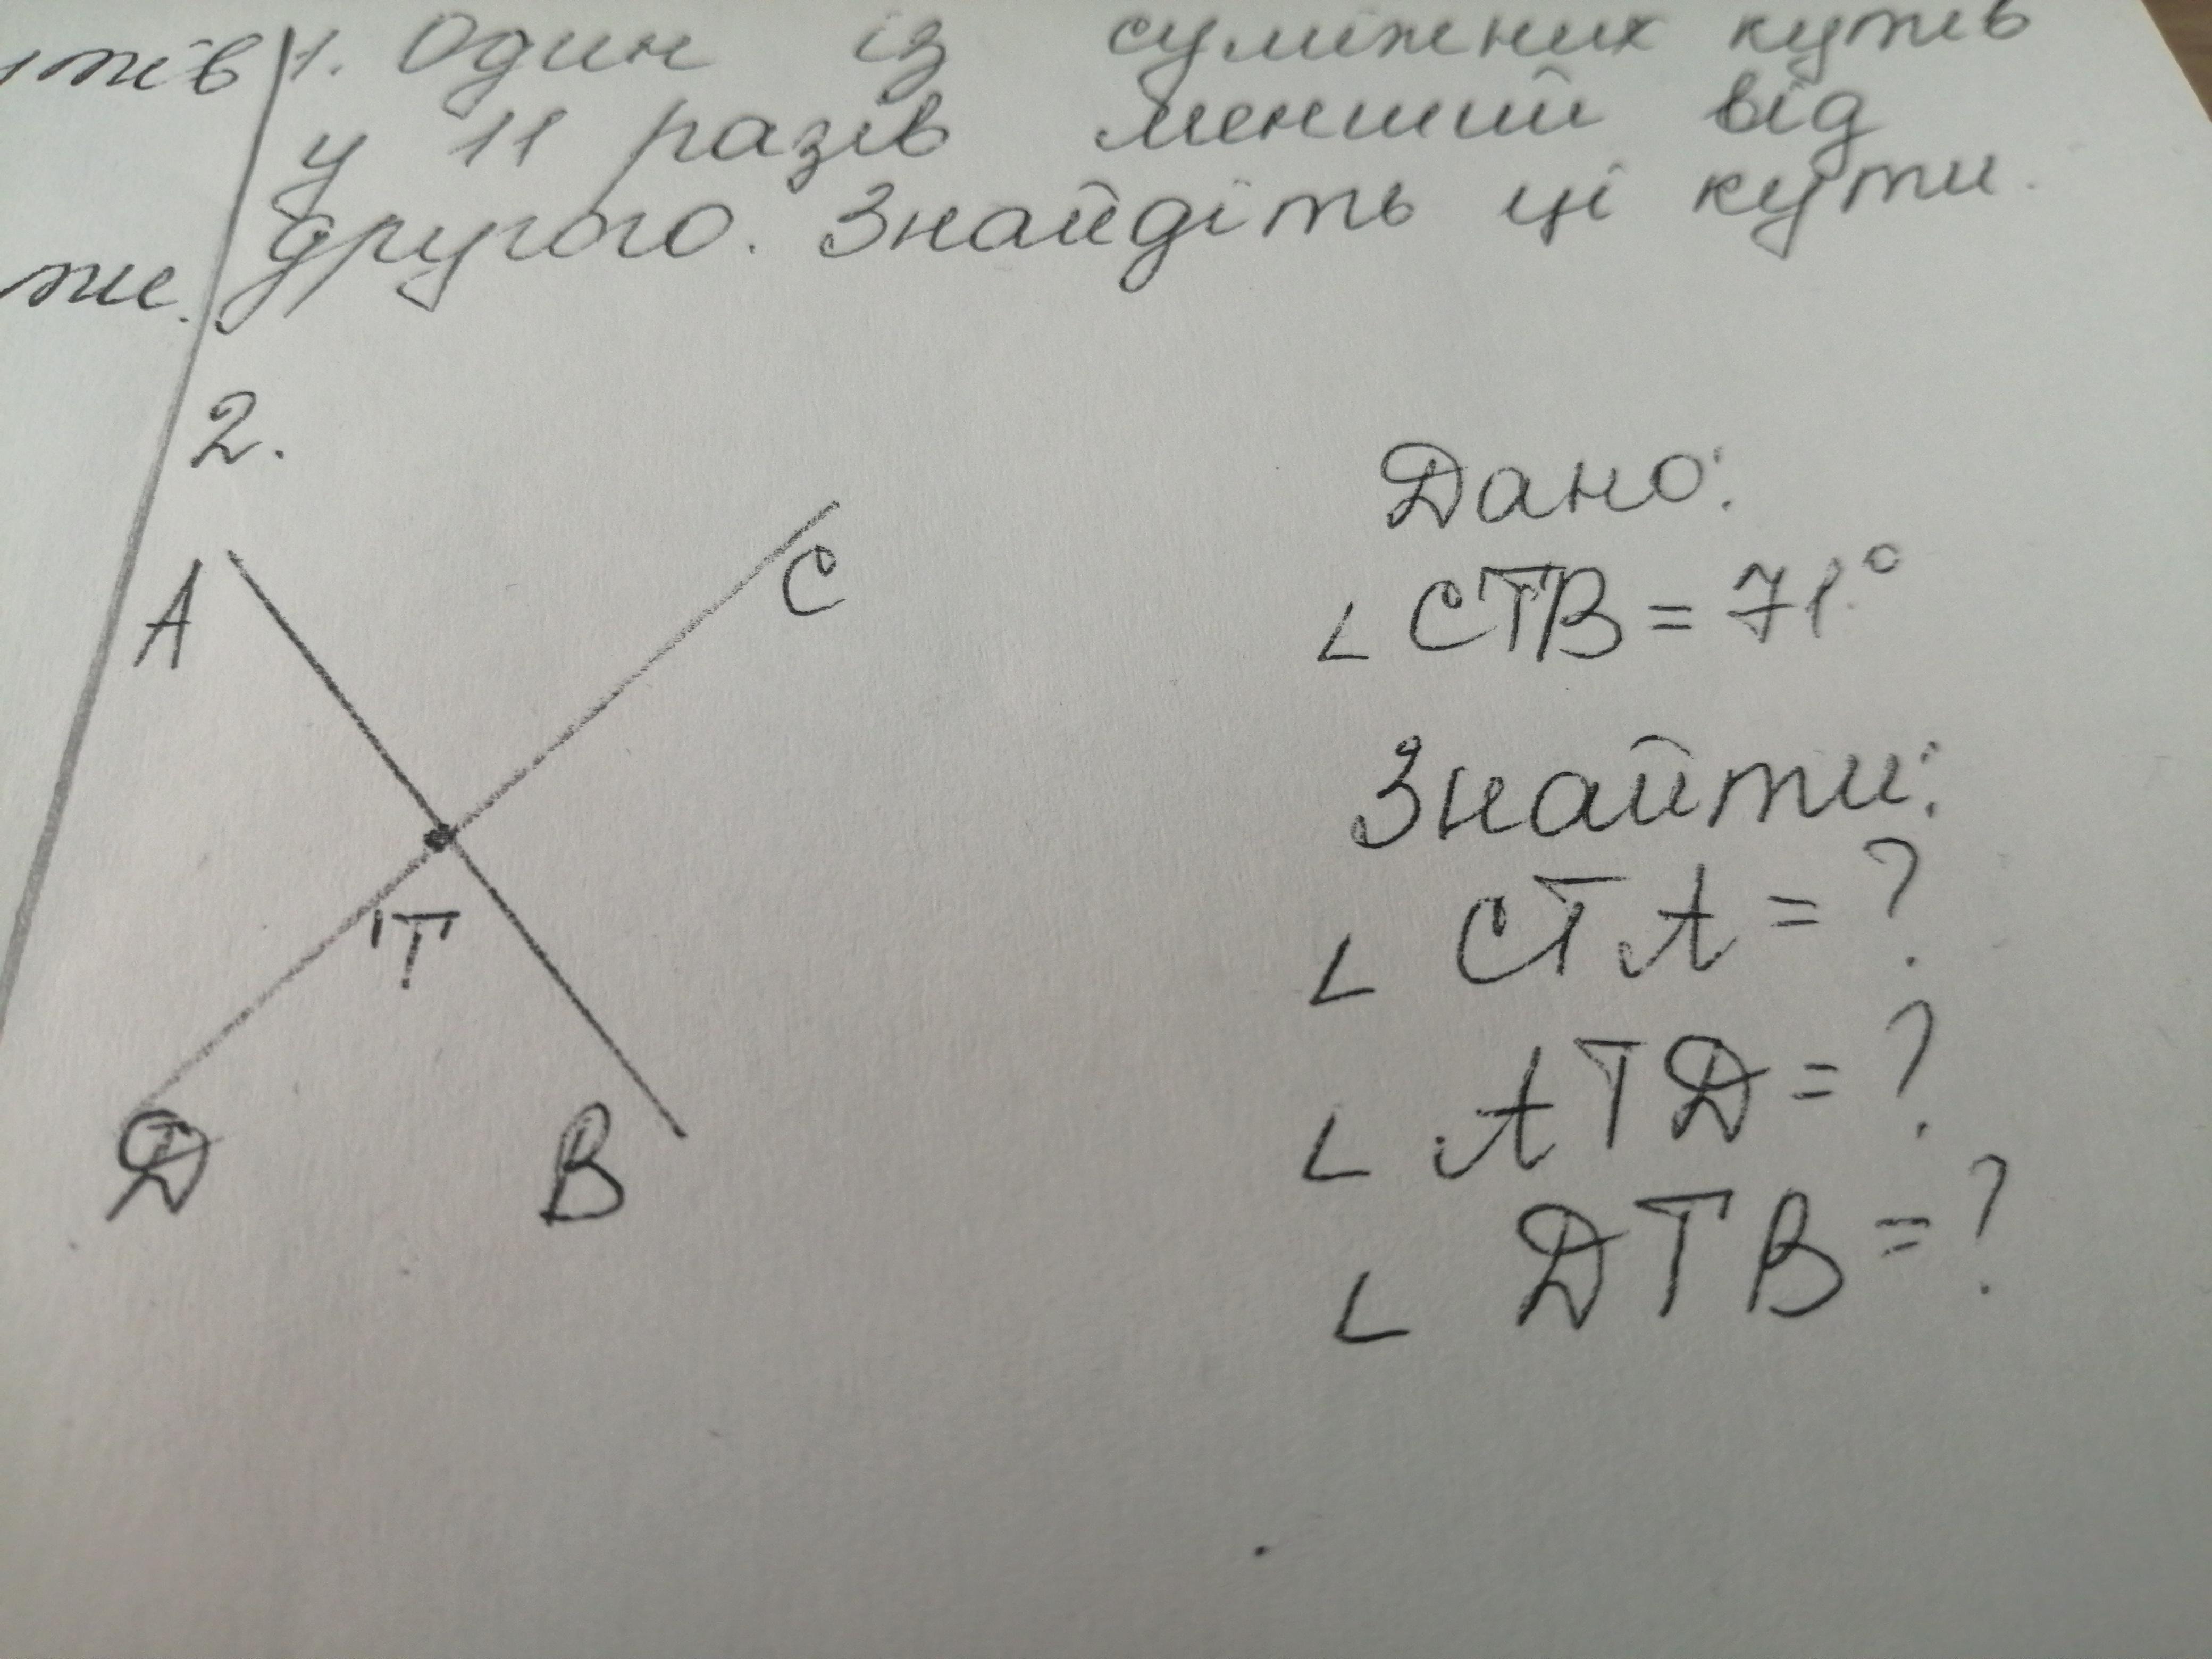 1. Один із суміжних кутів
у 11 разів менший від
другого. Знайдіть ці кути.
2.
A
C
T
Д
B
Дано:
∠ CTB = 71°
Знайти:
∠ CTA = ?
∠ ATД = ?
∠ ДTB = ?